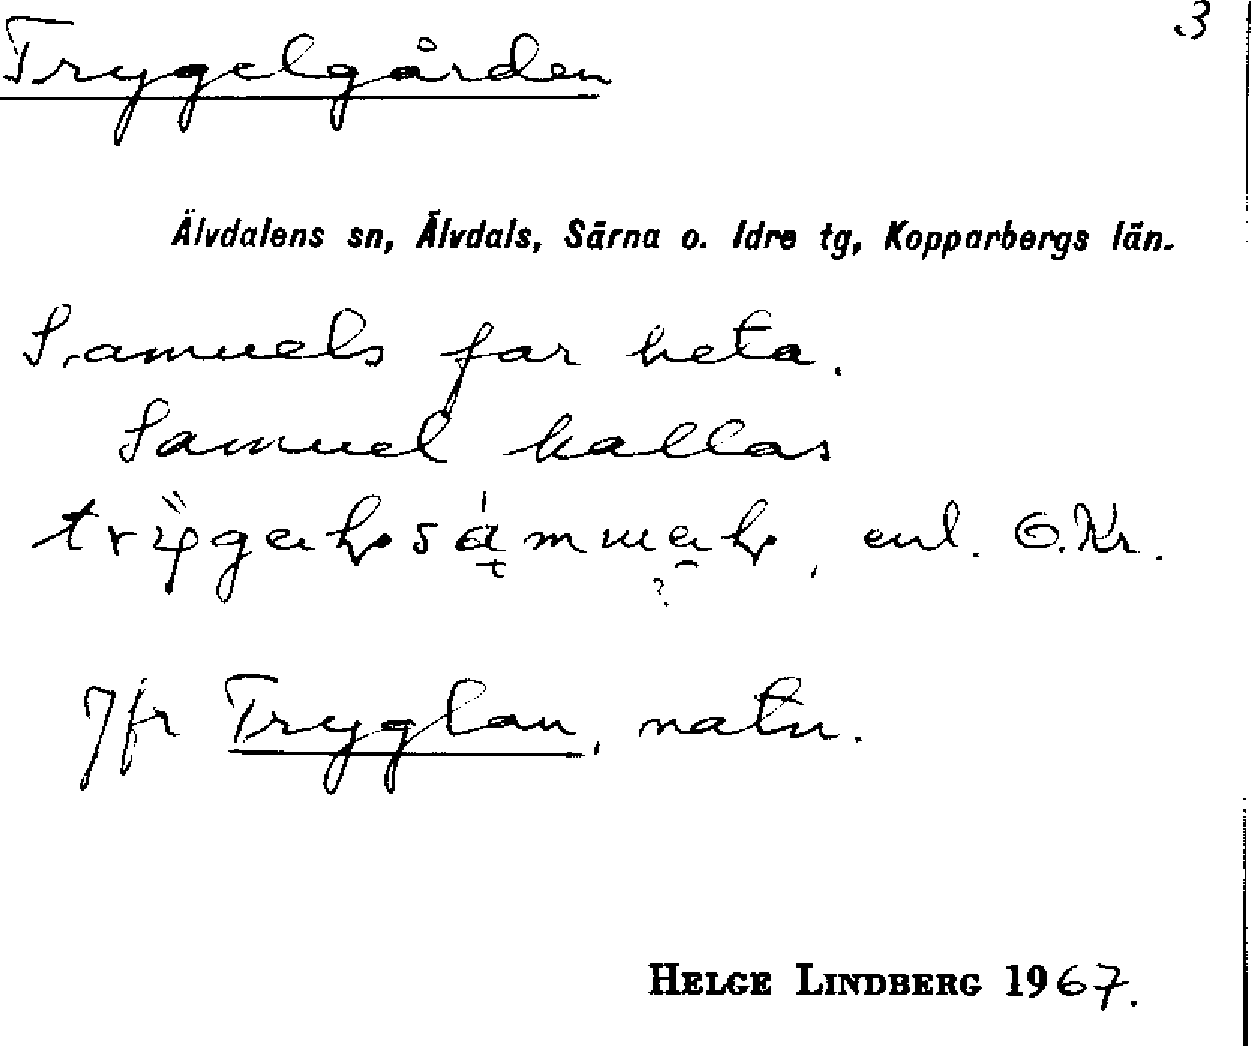 3
Trygelgården
Älvdalens sn, Älvdals, Särna o. Idre tg, Kopparbergs län.
Samuels far heta.
Samuel kallas
enl. O.Kr.
Jfr Tryglan, natn.
HELGE LINDBERG 1967.